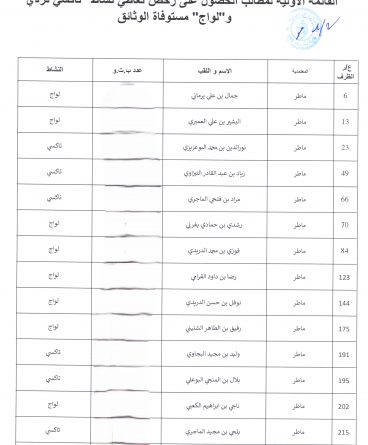 القائمة الأولية لمطالب الحصول على رخص تعاطي نشاط "تاكسي فردي
و"لواج" مستوفاة الوثائق
ع/ر الظرف المعتمدية الاسم و اللقب عدد ب.ت.و النشاط
6 ماطر جمال بن علي يرماني لواج
13 ماطر البشير بن علي العميري لواج
23 ماطر نورالدين بن محمد البوعزيزي تاكسي
49 ماطر زياد بن عبد القادر التوزاوي تاكسي
66 ماطر مراد بن فتحي الماجري تاكسي
70 ماطر رشدي بن حمادي يفرني لواج
84 ماطر فوزي بن محمد الدريدي لواج
123 ماطر رضا بن داود القرامي لواج
144 ماطر نوفل بن حسن الدريدي لواج
175 ماطر رفيق بن الطاهر الشنيني لواج
191 ماطر وليد بن مجيد البجاوي تاكسي
195 ماطر بلال بن المنجي البوعلي تاكسي
202 ماطر ناجي بن ابراهيم الكعبي لواج
215 ماطر يلحي بن مجيد الماجري تاكسي